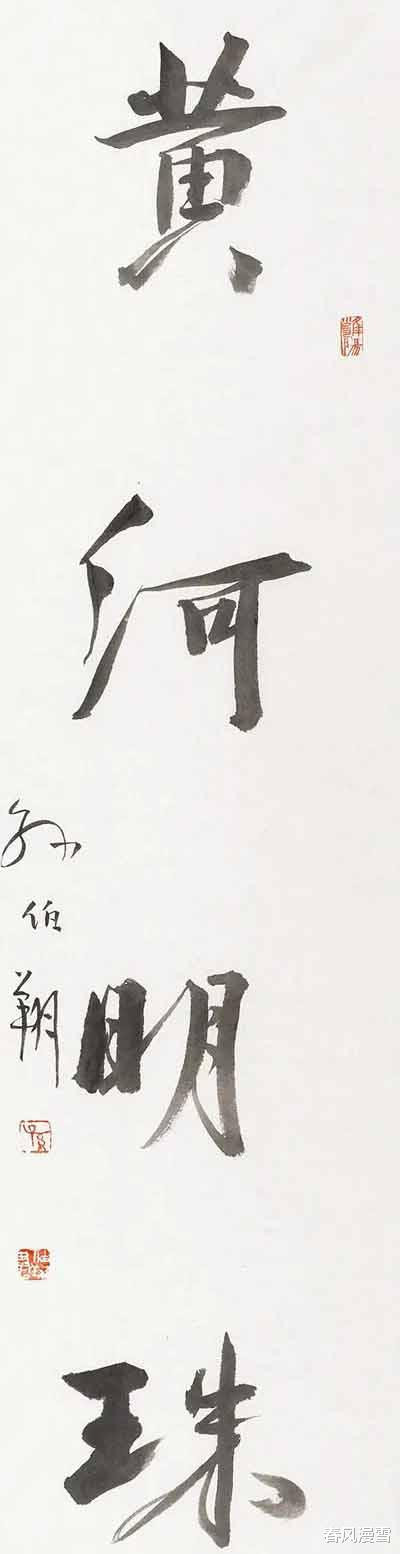 黄河明珠
孙伯翔
春风漫雪